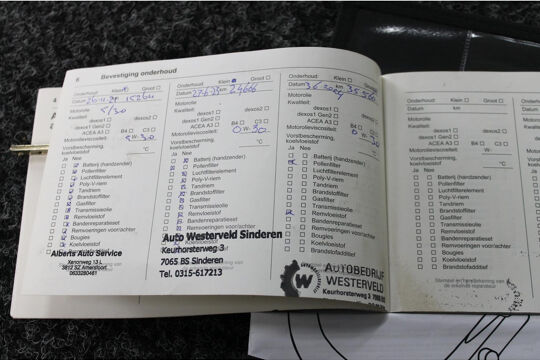 6 Bevestiging onderhoud
Onderhoud: Klein Groot
Datum 26-11-21 km
Motorolie 5/30
Kwaliteit:
dexos1 dexos2
dexos1 Gen2
ACEA A3 B4 C3
Motorolieviscositeit: W- 30
Vorstbescherming, koelvloeistof °C
Ja Nee
Batterij (handzender)
Pollenfilter
Luchtfilterelement
Poly-V-riem
Tandriem
Brandstoffilter
Gasfilter
Transmissieolie
Remvloeistof
Bandenreparatieset
Remvoeringen voor/achter
Bougies
Koelvloeistof
Alberts Auto Service
Xenonweg 13 L
3812 SZ Amersfoort
0633280461
Onderhoud: Klein Groot
Datum 27-6-23 km 24606
Motorolie
Kwaliteit:
dexos1 dexos2
dexos1 Gen2
ACEA A3 B4 C3
Motorolieviscositeit: 0 W- 30
Vorstbescherming, koelvloeistof °C
Ja Nee
Batterij (handzender)
Pollenfilter
Luchtfilterelement
Poly-V-riem
Tandriem
Brandstoffilter
Gasfilter
Transmissieolie
Remvloeistof
Bandenreparatieset
Remvoeringen voor/achter
Auto Westerveld Sinderen
Keurhorsterweg 3
7065 BS Sinderen
Tel. 0315-617213
Onderhoud: Klein Groot
Datum 3-6-2024 km
Motorolie
Kwaliteit:
dexos1 dexos2
dexos1 Gen2
ACEA A3 B4 C3
Motorolieviscositeit: 0 W- 30
Vorstbescherming, koelvloeistof °C
Ja Nee
Batterij (handzender)
Pollenfilter
Luchtfilterelement
Poly-V-riem
Tandriem
Brandstoffilter
Gasfilter
Transmissieolie
Remvloeistof
Bandenreparatieset
Remvoeringen voor/achter
Bougies
Koelvloeistof
Brandstofadditief
W
AUTOBEDRIJF
WESTERVELD
Keurhorsterweg 3
Onderhoud: Klein Groot
Datum km
Motorolie
Kwaliteit:
dexos1 dexos2
dexos1 Gen2
ACEA A3 B4 C3
Motorolieviscositeit: W-
Vorstbescherming, koelvloeistof °C
Ja Nee
Batterij (handzender)
Pollenfilter
Luchtfilterelement
Poly-V-riem
Tandriem
Brandstoffilter
Gasfilter
Transmissieolie
Remvloeistof
Bandenreparatieset
Remvoeringen voor/achter
Bougies
Koelvloeistof
Brandstofadditief
Stempel en handtekening van
de erkende reparateur